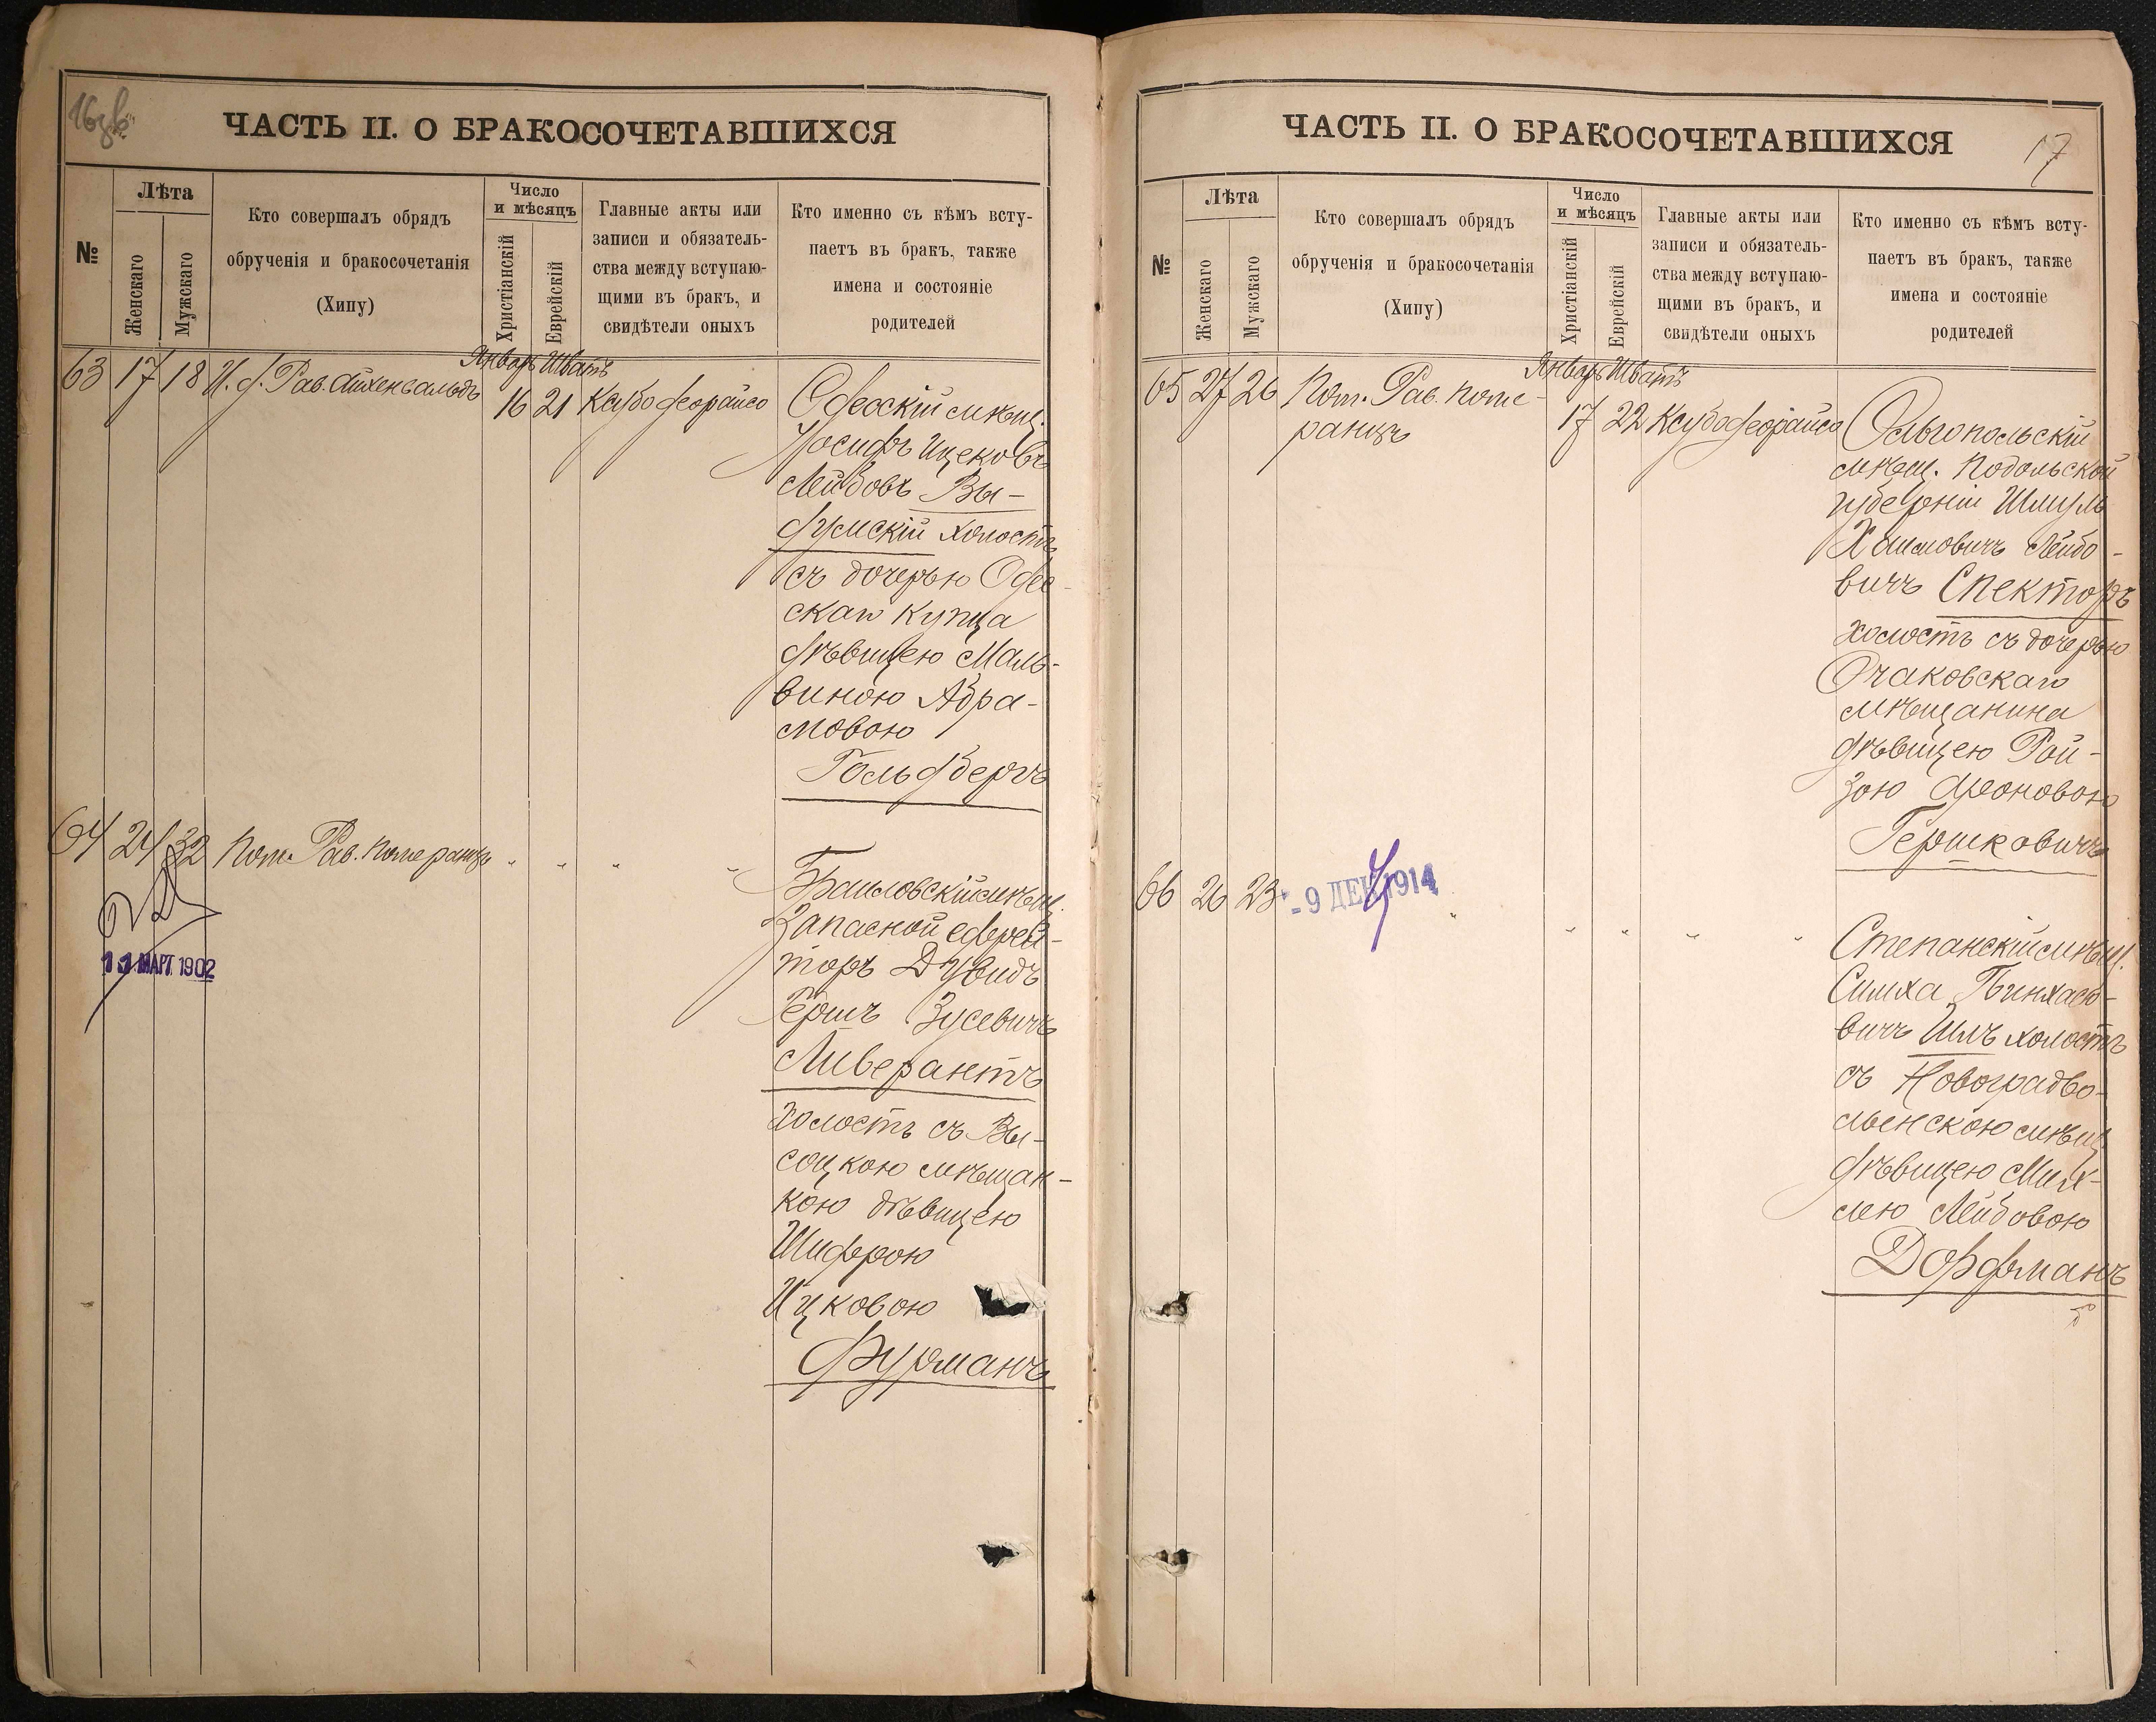 ЧАСТЬ II. О БРАКОСОЧЕТАВШИХСЯ
№
Лѣта
Женскаго
Мужскаго
Кто совершалъ обрядъ
обрученія и бракосочетанія
(Хипу)
Число
и мѣсяцъ
Христіанскій
Еврейскій
Главные акты или
записи и обязатель-
ства между вступаю-
щими въ бракъ, и
свидѣтели оныхъ
Кто именно съ кѣмъ всту-
паетъ въ бракъ, также
имена и состояніе
родителей
63 17 18 И. д. Рав. Айхенвальдъ
Январь Шватъ
16 21
Одесскій мѣщ.
Іосифъ Ицековъ
Лейбовъ Вы-
думскій холостъ
съ дочерью Одес-
скаго купца
дѣвицею Маль-
виною Абра-
мовою
Гольдбергъ
64 24 32 Пом. Рав. Померанцъ " " " "
11 МАРТ 1902
Браиловскій мѣщ.
Запасной ефрей-
торъ Дувидъ
Гершъ Зусевичъ
Ливерантъ
холостъ съ Вы-
соцкою мѣщан-
кою дѣвицею
Шифрою
Ицковою
Фурманъ
ЧАСТЬ II. О БРАКОСОЧЕТАВШИХСЯ
17
№
Лѣта
Женскаго
Мужскаго
Кто совершалъ обрядъ
обрученія и бракосочетанія
(Хипу)
Число
и мѣсяцъ
Христіанскій
Еврейскій
Главные акты или
записи и обязатель-
ства между вступаю-
щими въ бракъ, и
свидѣтели оныхъ
Кто именно съ кѣмъ всту-
паетъ въ бракъ, также
имена и состояніе
родителей
65 27 26 Пом. Рав. Поме-
ранцъ
Январь Шватъ
17 22
Ольгопольскій
мѣщ. Подольской
губерніи Шмуль
Хаимовичъ Лейбо-
вичъ Спекторъ
холостъ съ дочерью
Очаковскаго
мѣщанина
дѣвицею Рой-
зою Ароновою
Гершковичъ
66 26 23 " " " " "
-9 ДЕК 1914
Степанскій мѣщ.
Симха Пинхасо-
вичъ Шлъ холостъ
съ Новоградво-
лынскою мѣщ.
дѣвицею Мих-
лею Лейбовою
Дорфманъ